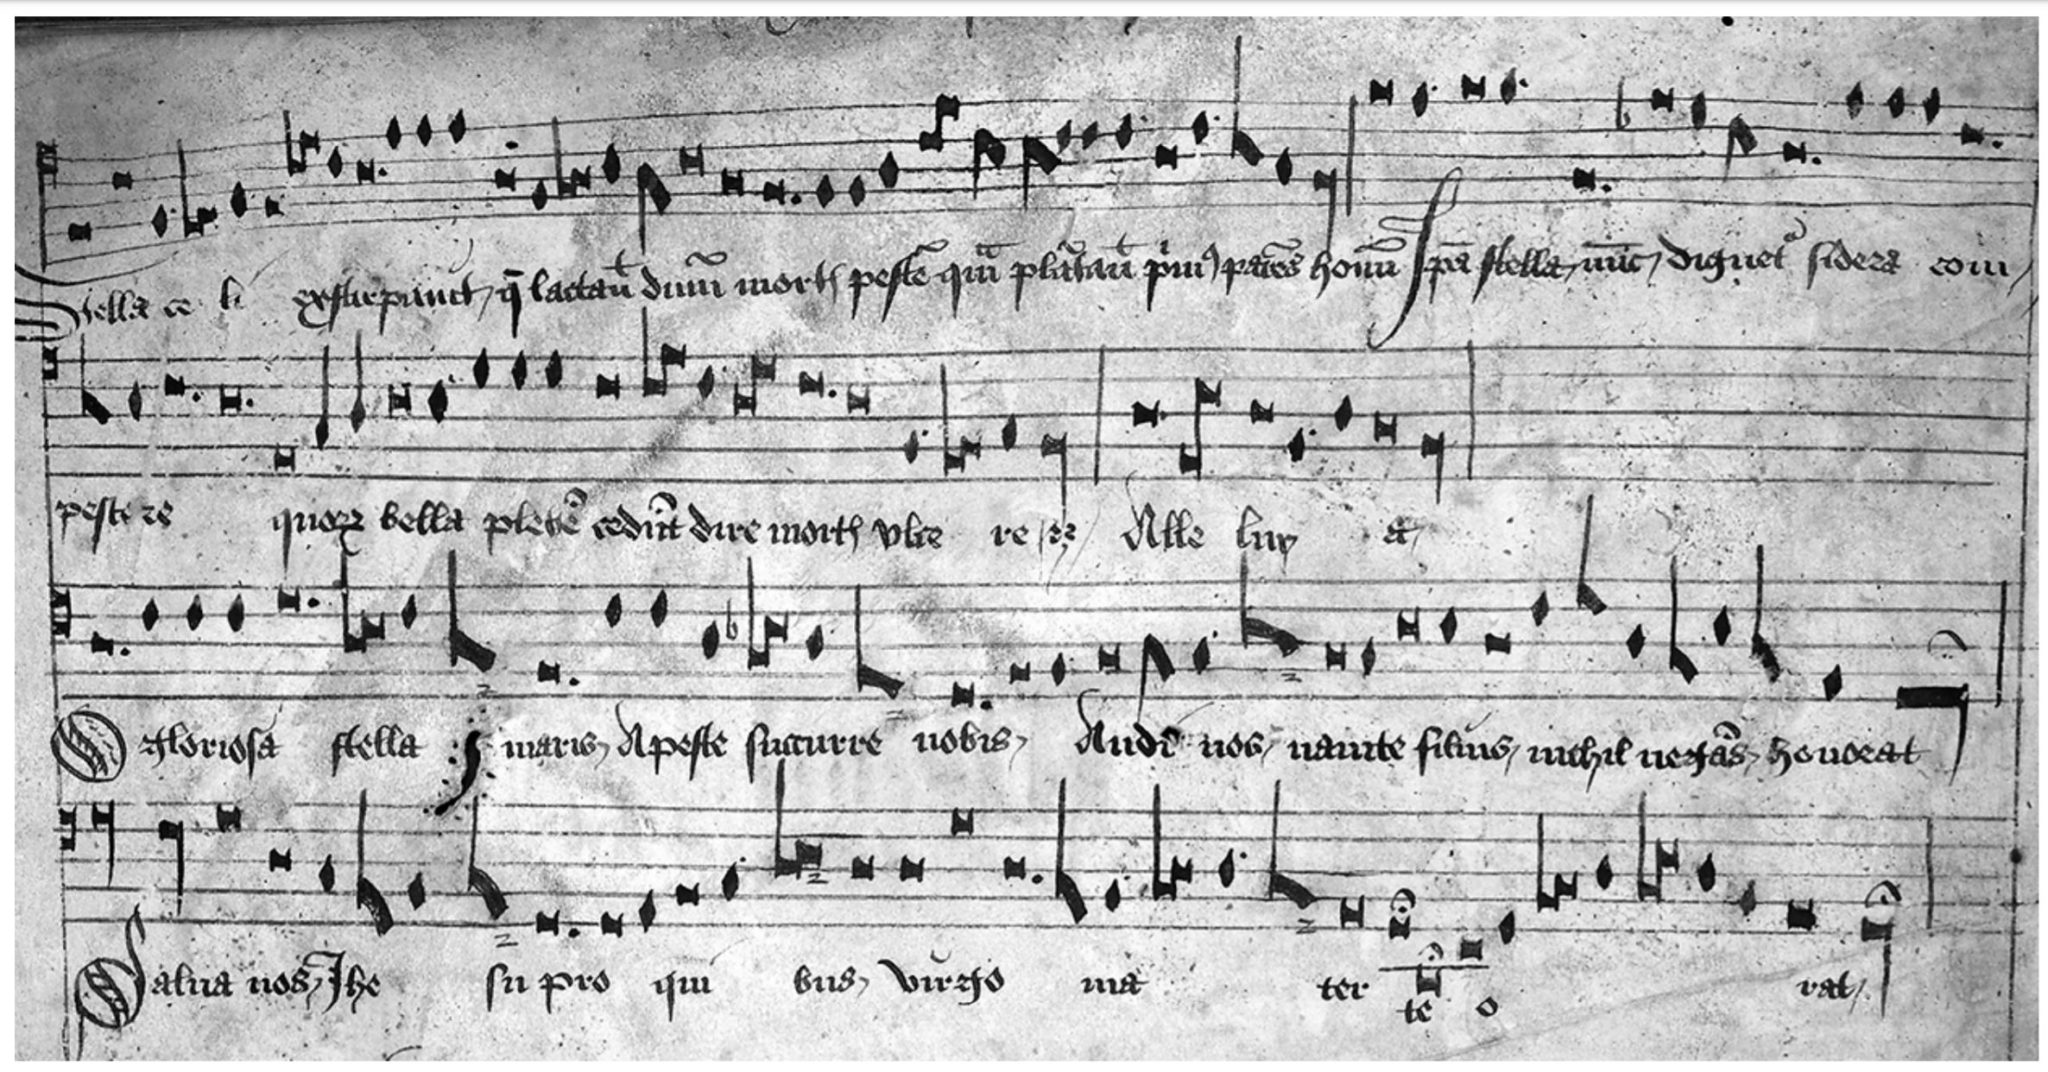 Stella ce li exstirpauit, q̄ lactauit dnm̄ mortꝭ pestē quā plātauit pͥmꝰ parēs hoīm Ipa stella, nūc, dignetͬ sidera com
pescere quoꝝ bella plebē cedūt dire mortꝭ vlce re Alle luy a
O gloriosa stella maris, A peste succurre nobis, Audi nos, nam te filius, nichil negās, honorat
Salua nos, Ihe su pro qui bus, virgo ma ter te o rat,